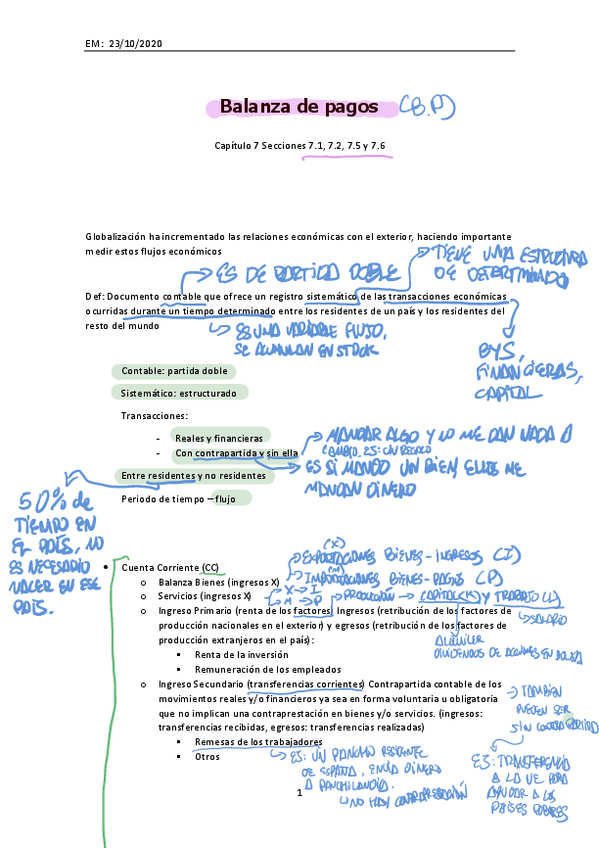 EM: 23/10/2020
Balanza de pagos (B.P)
Capítulo 7 Secciones 7.1, 7.2, 7.5 y 7.6
Globalización ha incrementado las relaciones económicas con el exterior, haciendo importante
medir estos flujos económicos
TIENE UNA ESTRUCTURA
DE DETERMINADO
ES DE PARTIDA DOBLE
Def: Documento contable que ofrece un registro sistemático de las transacciones económicas
o curridas durante un tiempo determinado entre los residentes de un país y los residentes del
resto del mundo
ES UNA VARIABLE FLUJO,
SE ACUMULAN EN STOCK
BYS,
FINANCIERAS,
CAPITAL
Contable: partida doble
Sistemático: estructurado
Transacciones:
- Reales y financieras
- Con contrapartida y sin ella
MANDAR ALGO Y NO ME DAN NADA A
CAMBIO. ES: UN REGALO
ES SI MANDO UN BIEN ELLOS ME
MANDAN DINERO
Entre residentes y no residentes
Periodo de tiempo – flujo
50% de
TIEMPO EN
EL PAÍS, NO
ES NECESARIO
NACER EN ESE
PAÍS.
• Cuenta Corriente (CC)
(X)
EXPORTACIONES BIENES - INGRESOS (I)
(M)
IMPORTACIONES BIENES - PAGOS (P)
o Balanza Bienes (ingresos X)
o Servicios (ingresos X)
X → I
M → P
PRODUCCIÓN → CAPITAL(K) Y TRABAJO (L)
SALARIO
o Ingreso Primario (renta de los factores) Ingresos (retribución de los factores de
producción nacionales en el exterior) y egresos (retribución de los factores de
producción extranjeros en el país):
ALQUILER
DIVIDENDOS DE ACCIONES EN BOLSA
▪ Renta de la inversión
▪ Remuneración de los empleados
o Ingreso Secundario (transferencias corrientes) Contrapartida contable de los
movimientos reales y/o financieros ya sea en forma voluntaria u obligatoria
que no implican una contraprestación en bienes y/o servicios. (ingresos:
transferencias recibidas, egresos: transferencias realizadas)
TAMBIÉN
PUEDEN SER
SIN CONTRAPARTIDA
▪ Remesas de los trabajadores
▪ Otros
ES: UN PANCHO RESIDENTE
DE ESPAÑA, ENVÍA DINERO
A PANCHILANDIA.
NO HAY CONTRAPRESTACIÓN
ES: TRANSFERENCIA
A LA UE PARA
AYUDAR A LOS
PAÍSES POBRES
1